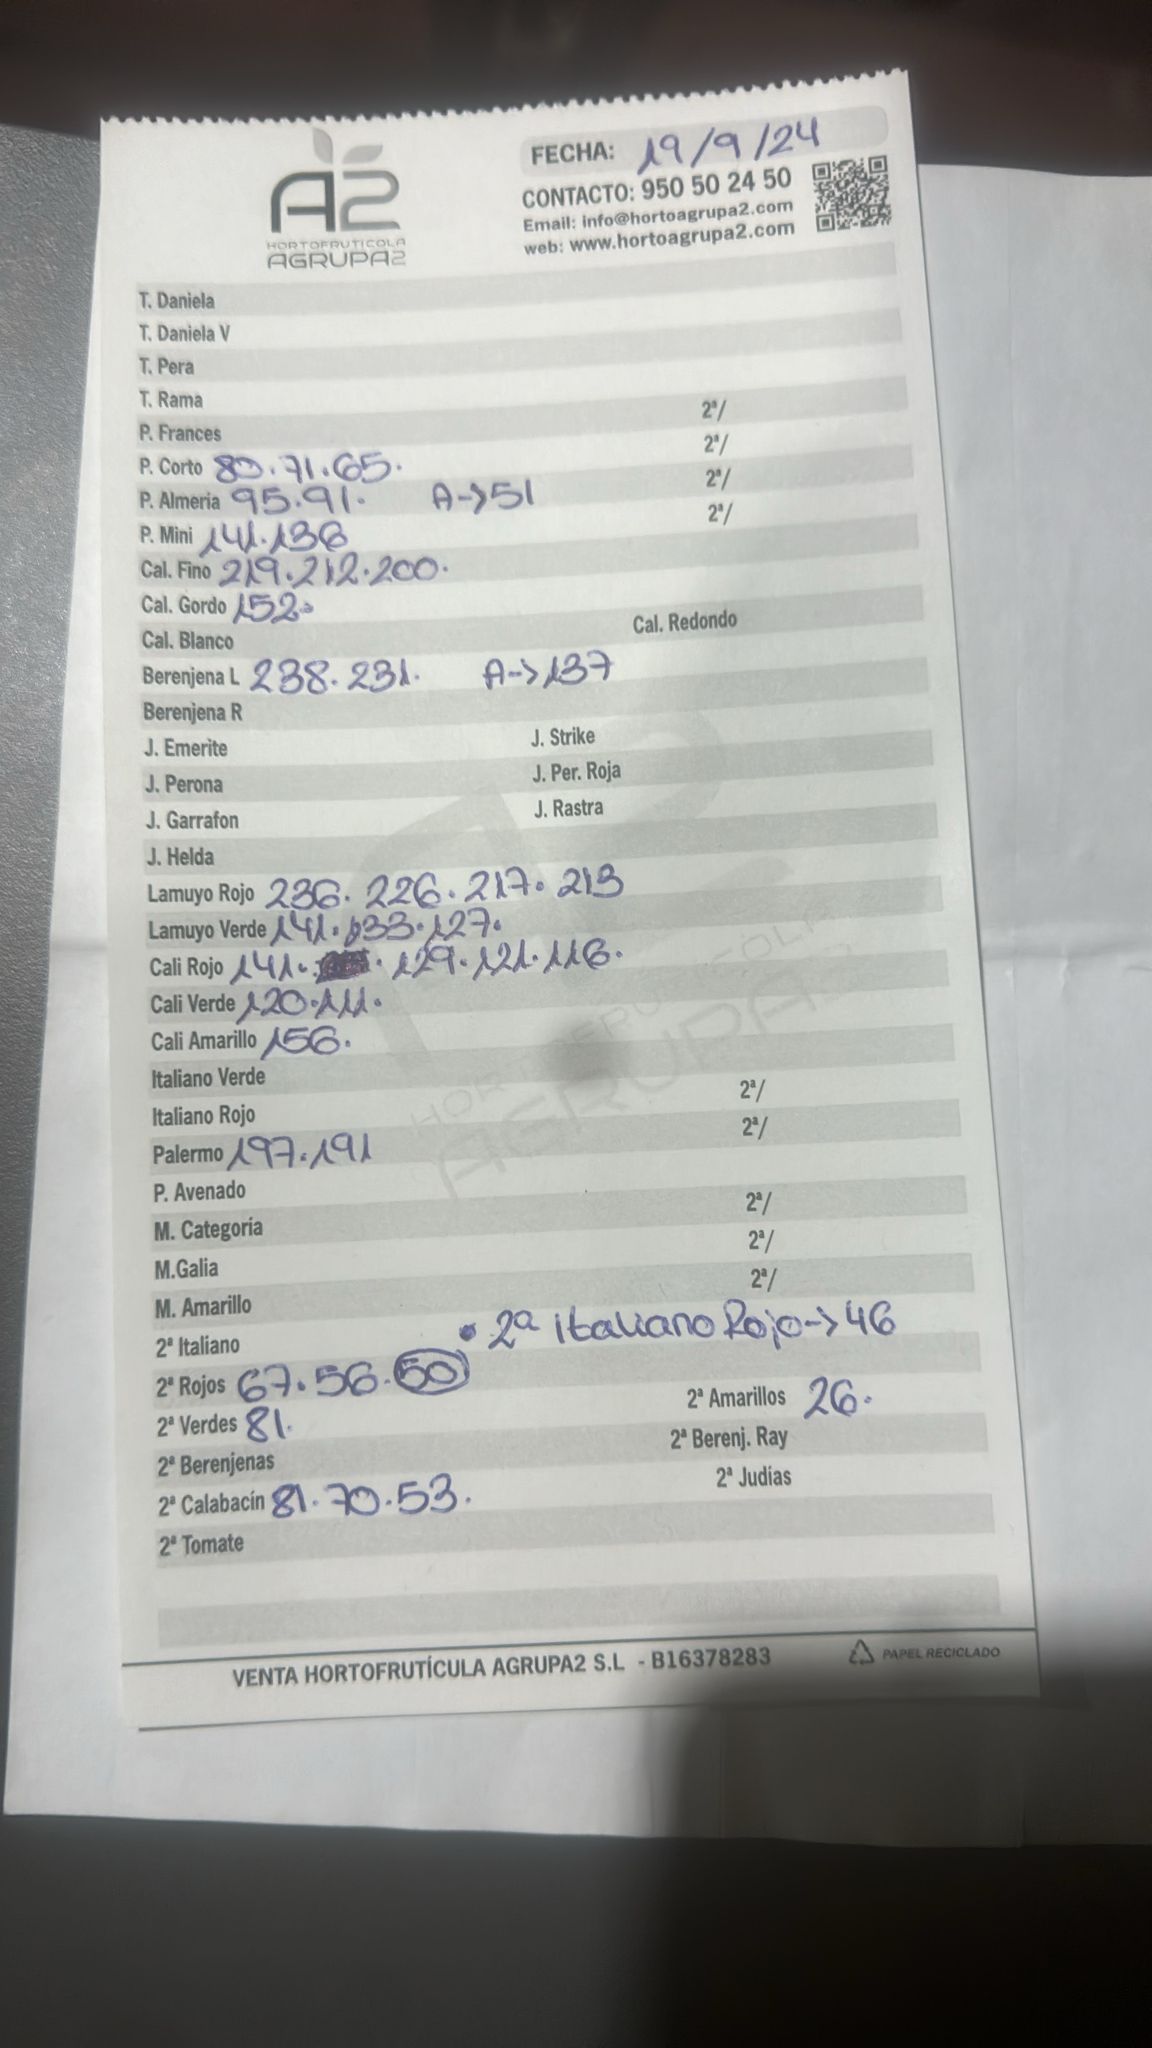 A2
HORTOFRUTICOLA
AGRUPA2
FECHA: 19/9/24
CONTACTO: 950 50 24 50
Email: info@hortoagrupa2.com
web: www.hortoagrupa2.com
T. Daniela
T. Daniela V
T. Pera
T. Rama
P. Frances 2ª/
P. Corto 80.71.65. 2ª/
P. Almeria 95.91. A->51 2ª/
P. Mini 141.136 2ª/
Cal. Fino 219.212.200.
Cal. Gordo 152.
Cal. Blanco Cal. Redondo
Berenjena L 238.231. A->137
Berenjena R
J. Emerite J. Strike
J. Perona J. Per. Roja
J. Garrafon J. Rastra
J. Helda
Lamuyo Rojo 236. 226. 217. 213
Lamuyo Verde 141.133.127.
Cali Rojo 141. . 129.121.116.
Cali Verde 120.111.
Cali Amarillo 156.
Italiano Verde
Italiano Rojo 2ª/
Palermo 197.191 2ª/
P. Avenado
M. Categoria 2ª/
M.Galia 2ª/
M. Amarillo 2ª/
2ª Italiano • 2ª italiano Rojo->46
2ª Rojos 67.56.50
2ª Verdes 81. 2ª Amarillos 26.
2ª Berenjenas 2ª Berenj. Ray
2ª Calabacín 81.70.53. 2ª Judias
2ª Tomate
VENTA HORTOFRUTÍCULA AGRUPA2 S.L - B16378283
PAPEL RECICLADO